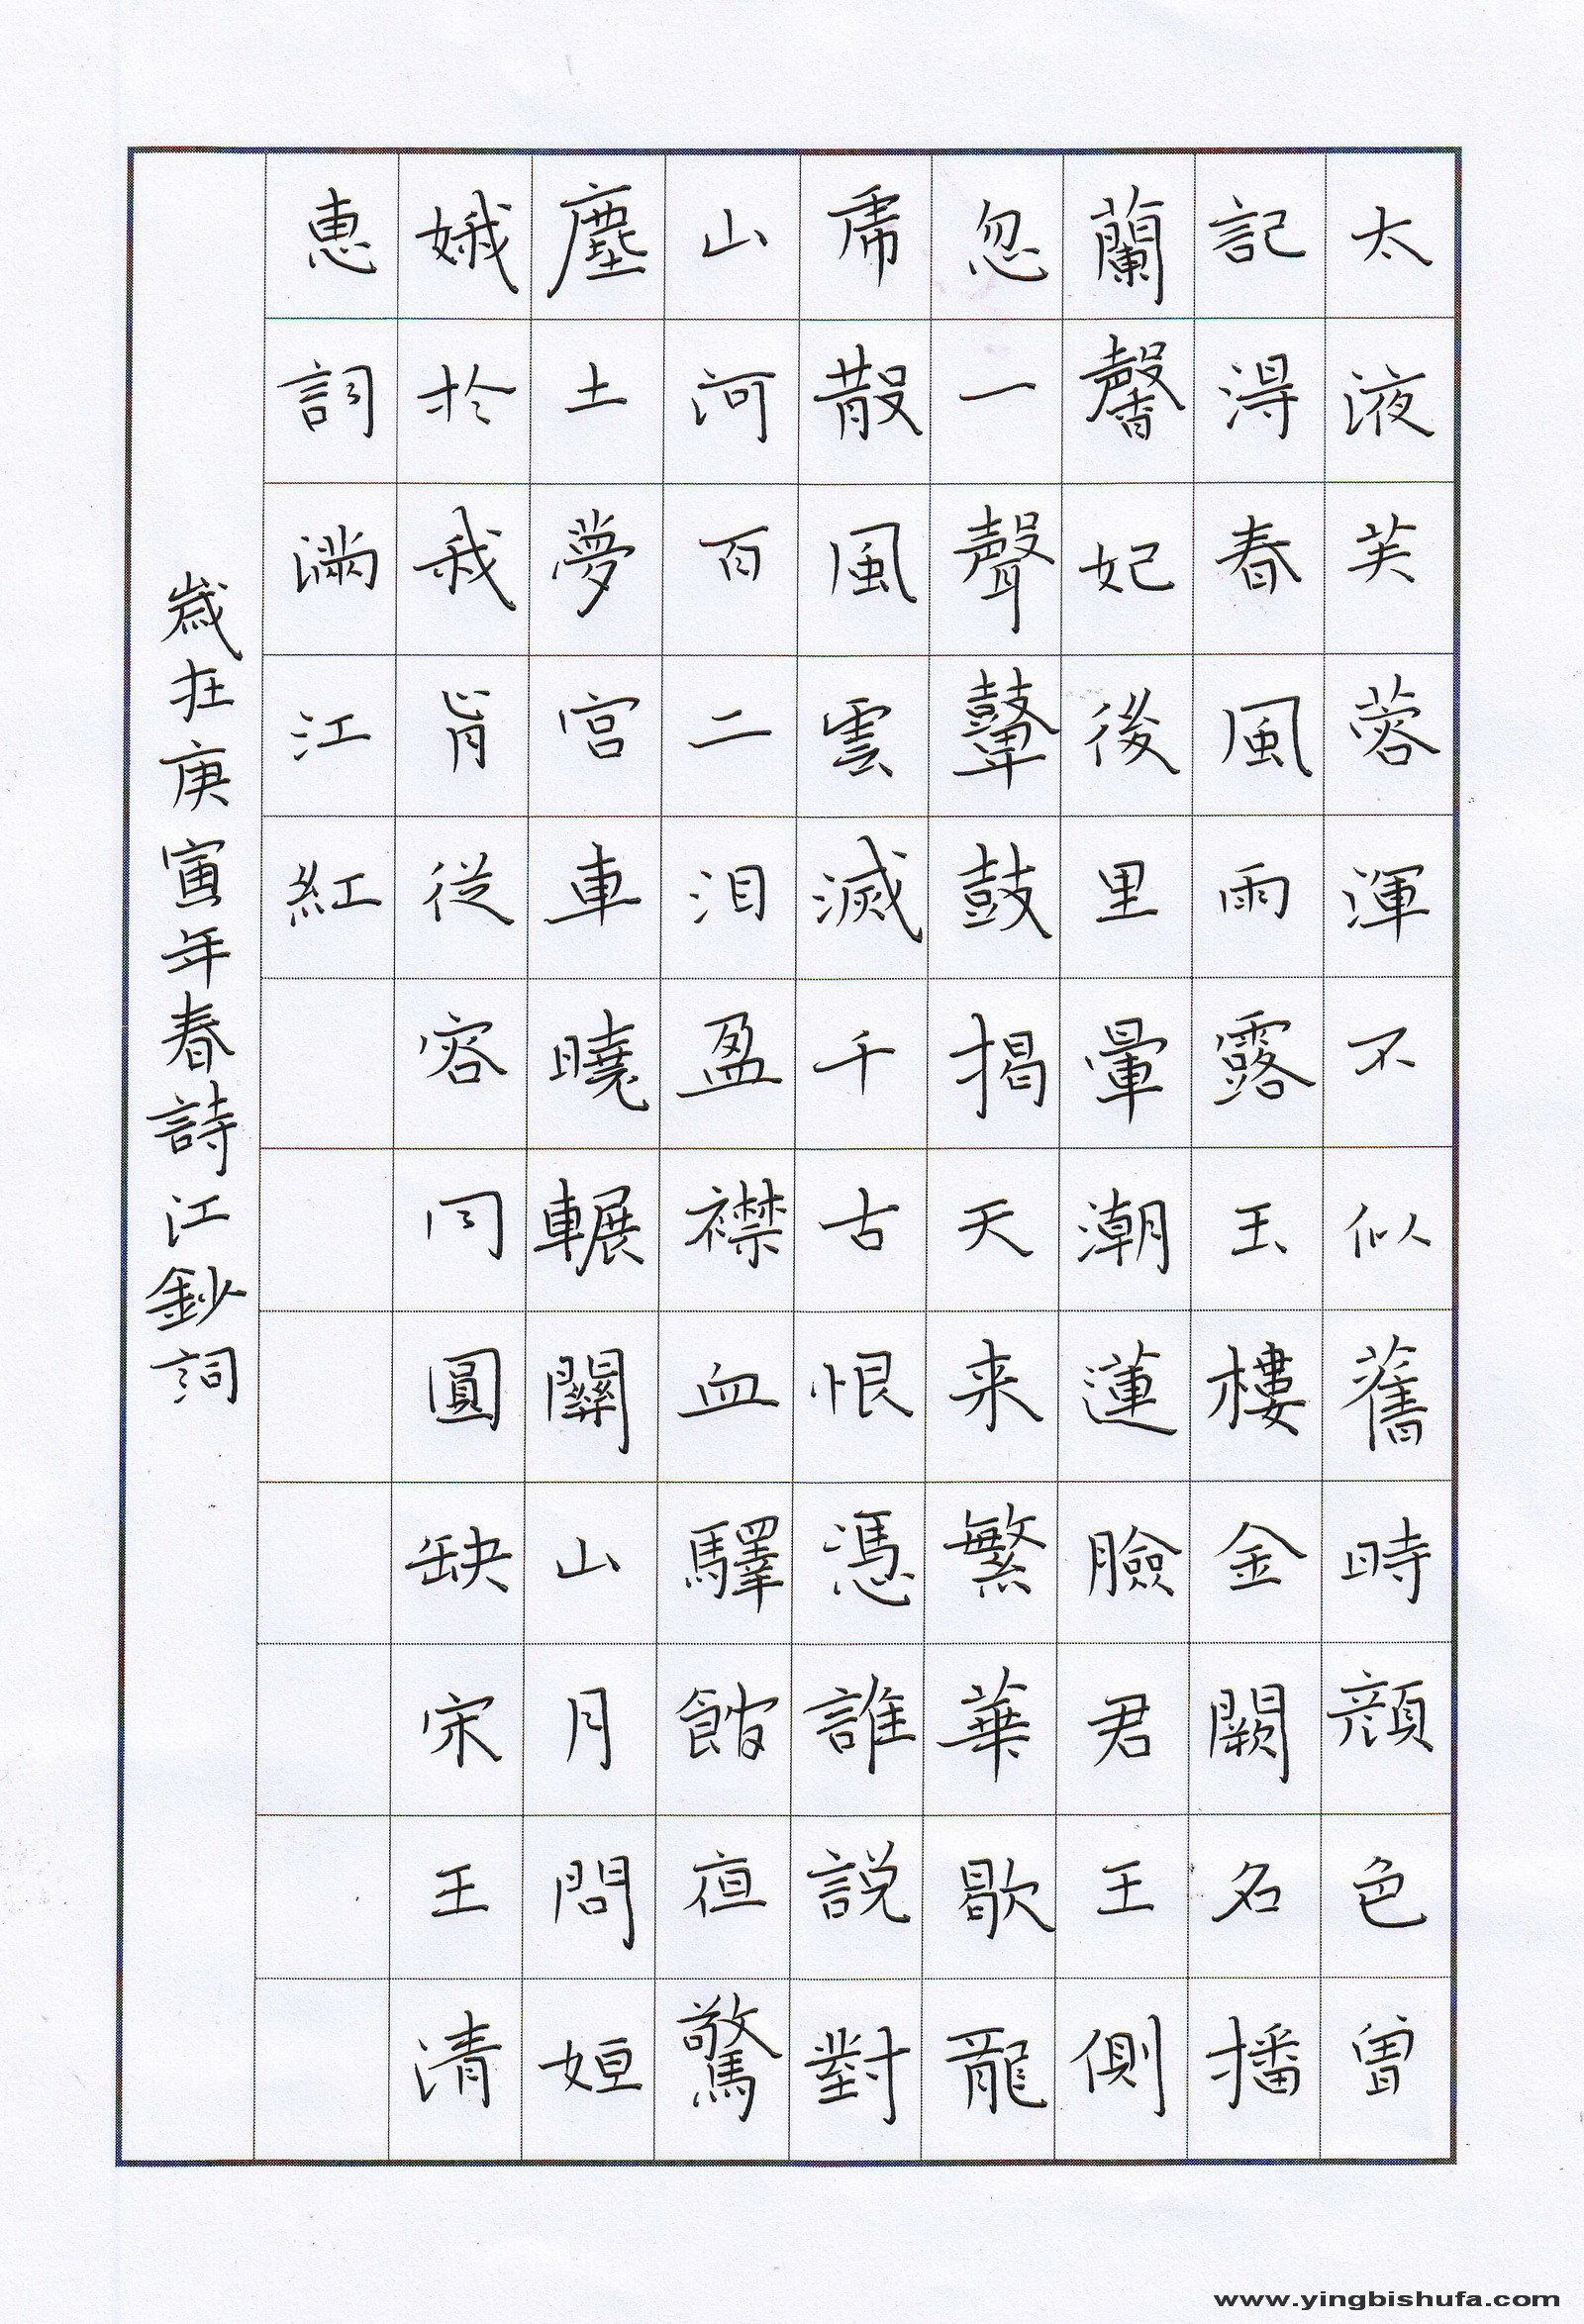 太液芙蓉渾不似舊時顔色曽
記淂春風雨露玉樓金闕名播
蘭馨妃後里暈潮蓮臉君王側
忽一聲鼙鼓揭天来繁華歇龍
虎散風雲滅千古恨憑誰説對
山河百二泪盈襟血驛館夜驚
塵土夢宫車曉輾關山月問姮
娥於我肯從容同圓缺宋王清
惠詞滿江紅
歲在庚寅年春詩江鈔詞
www.yingbishufa.com